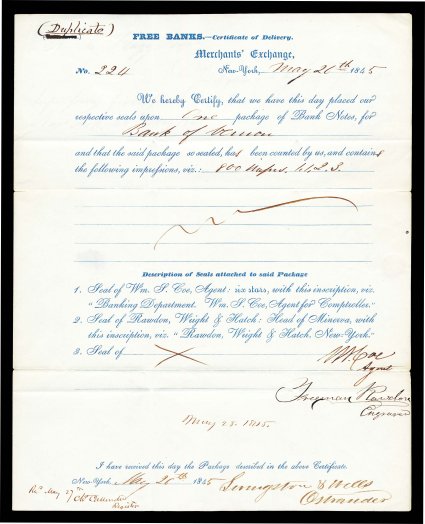 (Duplicate)
FREE BANKS.—Certificate of Delivery.
Merchants' Exchange,
No. 224 New-York, May 26th 1845
We hereby Certify, that we have this day placed our
respective seals upon One package of Bank Notes, for
Bank of Vernon
and that the said package so sealed, has been counted by us, and contains
the following impressions, viz: 800 Imprs. 1.1.2.3.
Description of Seals attached to said Package
1. Seal of Wm. S. Coe, Agent: six stars, with this inscription, viz.
"Banking Department. Wm. S. Coe, Agent for Comptroller."
2. Seal of Rawdon, Wright & Hatch: Head of Minerva, with
this inscription, viz. "Rawdon, Wright & Hatch, New-York."
3. Seal of
Coe
Agent
Freeman Rawdon
Engraver
May 28. 1845.
I have received this day the Package described in the above Certificate.
New-York, May 26th 1845 Livingston & Wells
Rec. May 27th Register Ostrander